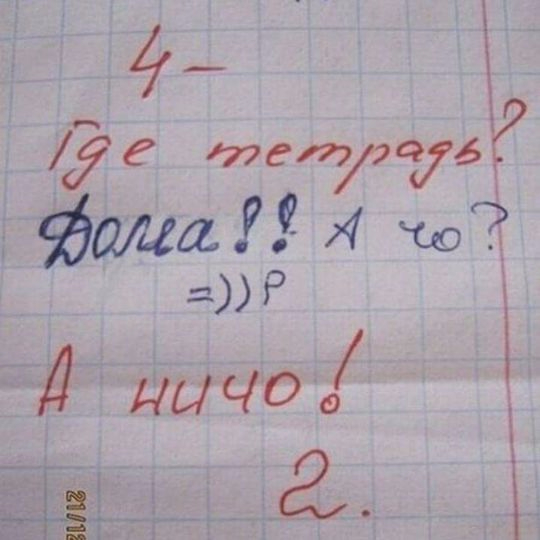 4-
Где тетрадь?
Дома!! А чо?
=))P
А ничо!
2.
21/12